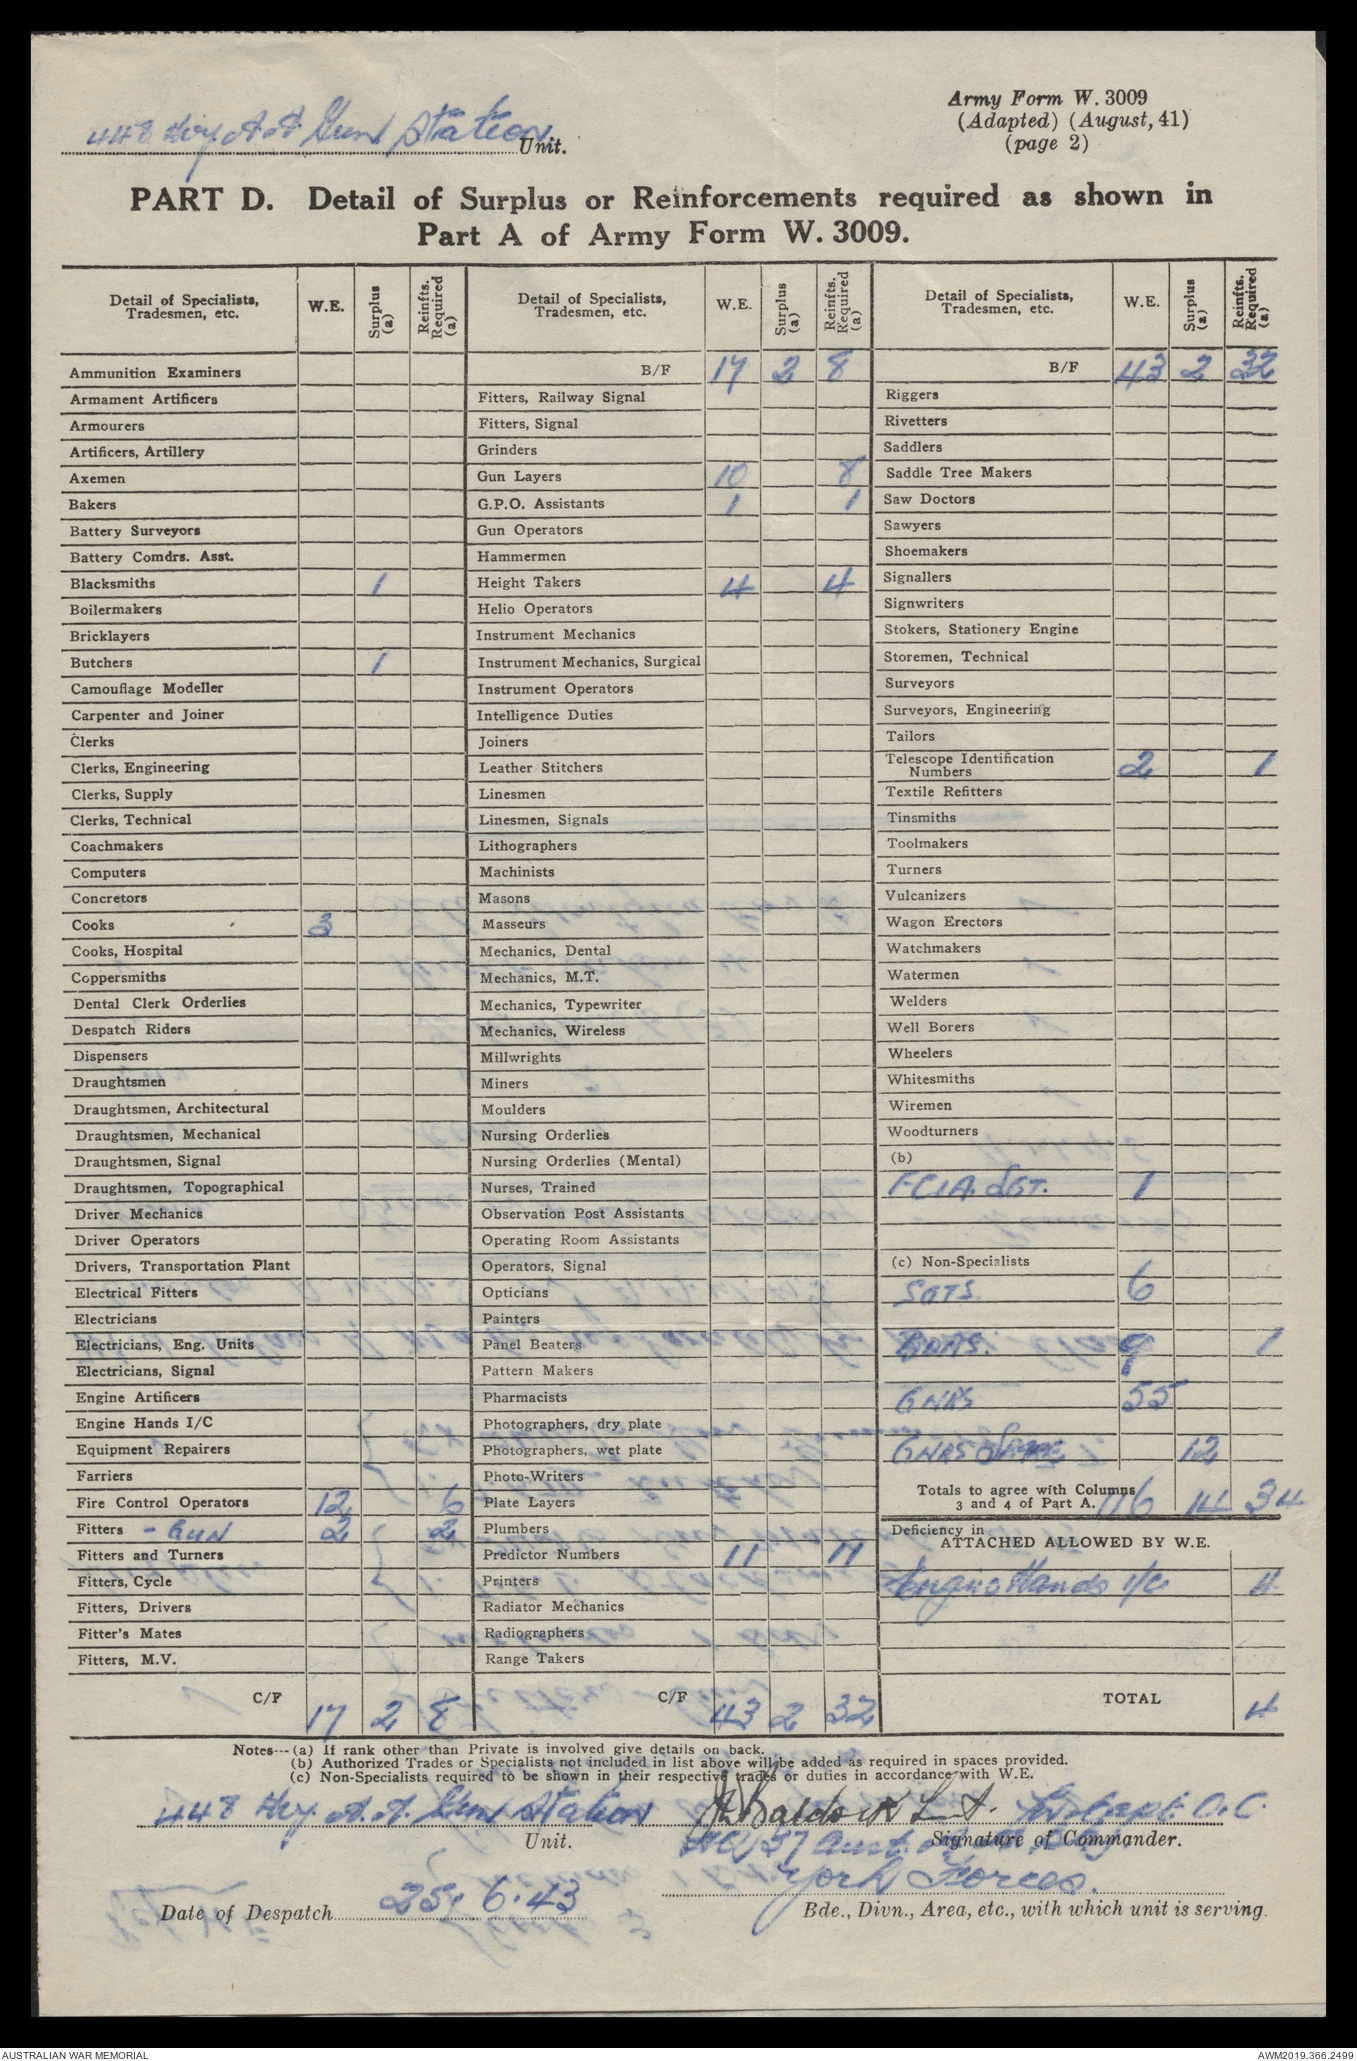 448 Hvy A.A. Gun Station Unit.
Army Form W. 3009
(Adapted) (August, 41)
(page 2)
PART D. Detail of Surplus or Reinforcements required as shown in
Part A of Army Form W. 3009.
Detail of Specialists, Tradesmen, etc. W.E. Surplus (a) Reinfts. Required (a)
Ammunition Examiners
Armament Artificers
Armourers
Artificers, Artillery
Axemen
Bakers
Battery Surveyors
Battery Comdrs. Asst.
Blacksmiths 1
Boilermakers
Bricklayers
Butchers 1
Camouflage Modeller
Carpenter and Joiner
Clerks
Clerks, Engineering
Clerks, Supply
Clerks, Technical
Coachmakers
Computers
Concretors
Cooks 3
Cooks, Hospital
Coppersmiths
Dental Clerk Orderlies
Despatch Riders
Dispensers
Draughtsmen
Draughtsmen, Architectural
Draughtsmen, Mechanical
Draughtsmen, Signal
Draughtsmen, Topographical
Driver Mechanics
Driver Operators
Drivers, Transportation Plant
Electrical Fitters
Electricians
Electricians, Eng. Units
Electricians, Signal
Engine Artificers
Engine Hands I/C
Equipment Repairers
Farriers
Fire Control Operators 12 6
Fitters - GUN 2 2
Fitters and Turners
Fitters, Cycle
Fitters, Drivers
Fitter's Mates
Fitters, M.V.
C/F 17 2 8
Detail of Specialists, Tradesmen, etc. W.E. Surplus (a) Reinfts. Required (a)
B/F 17 2 8
Fitters, Railway Signal
Fitters, Signal
Grinders
Gun Layers 10 8
G.P.O. Assistants 1 1
Gun Operators
Hammermen
Height Takers 4 4
Helio Operators
Instrument Mechanics
Instrument Mechanics, Surgical
Instrument Operators
Intelligence Duties
Joiners
Leather Stitchers
Linesmen
Linesmen, Signals
Lithographers
Machinists
Masons
Masseurs
Mechanics, Dental
Mechanics, M.T.
Mechanics, Typewriter
Mechanics, Wireless
Millwrights
Miners
Moulders
Nursing Orderlies
Nursing Orderlies (Mental)
Nurses, Trained
Observation Post Assistants
Operating Room Assistants
Operators, Signal
Opticians
Painters
Panel Beaters
Pattern Makers
Pharmacists
Photographers, dry plate
Photographers, wet plate
Photo-Writers
Plate Layers
Plumbers
Predictor Numbers 11 11
Printers
Radiator Mechanics
Radiographers
Range Takers
C/F 43 2 32
Detail of Specialists, Tradesmen, etc. W.E. Surplus (a) Reinfts. Required (a)
B/F 43 2 32
Riggers
Rivetters
Saddlers
Saddle Tree Makers
Saw Doctors
Sawyers
Shoemakers
Signallers
Signwriters
Stokers, Stationery Engine
Storemen, Technical
Surveyors
Surveyors, Engineering
Tailors
Telescope Identification
Numbers 2 1
Textile Refitters
Tinsmiths
Toolmakers
Turners
Vulcanizers
Wagon Erectors
Watchmakers
Watermen
Welders
Well Borers
Wheelers
Whitesmiths
Wiremen
Woodturners
(b)
FCIA. SGT. 1
(c) Non-Specialists
SGTS. 6
BDRS. 9 1
GNRS 55
GNRS 12
Totals to agree with Columns
3 and 4 of Part A. 116 14 34
Deficiency in
ATTACHED ALLOWED BY W.E.
Engine Hands I/C 4
TOTAL 4
Notes---(a) If rank other than Private is involved give details on back.
(b) Authorized Trades or Specialists not included in list above will be added as required in spaces provided.
(c) Non-Specialists required to be shown in their respective trades or duties in accordance with W.E.
448 Hvy. A.A. Gun Station Baldock Lt. Capt. O.C.
Unit. Signature of Commander.
York Forces.
Date of Despatch 25. 6. 43 Bde., Divn., Area, etc., with which unit is serving.
AUSTRALIAN WAR MEMORIAL
AWM2019.366.2499